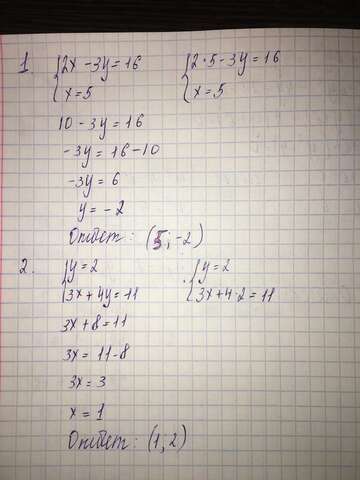 1. {2x - 3y = 16 {2·5 - 3y = 16
{x = 5 {x = 5
10 - 3y = 16
-3y = 16 - 10
-3y = 6
y = -2
Ответ: (5; -2)
2. {y = 2 {y = 2
{3x + 4y = 11 {3x + 4·2 = 11
3x + 8 = 11
3x = 11 - 8
3x = 3
x = 1
Ответ: (1; 2)